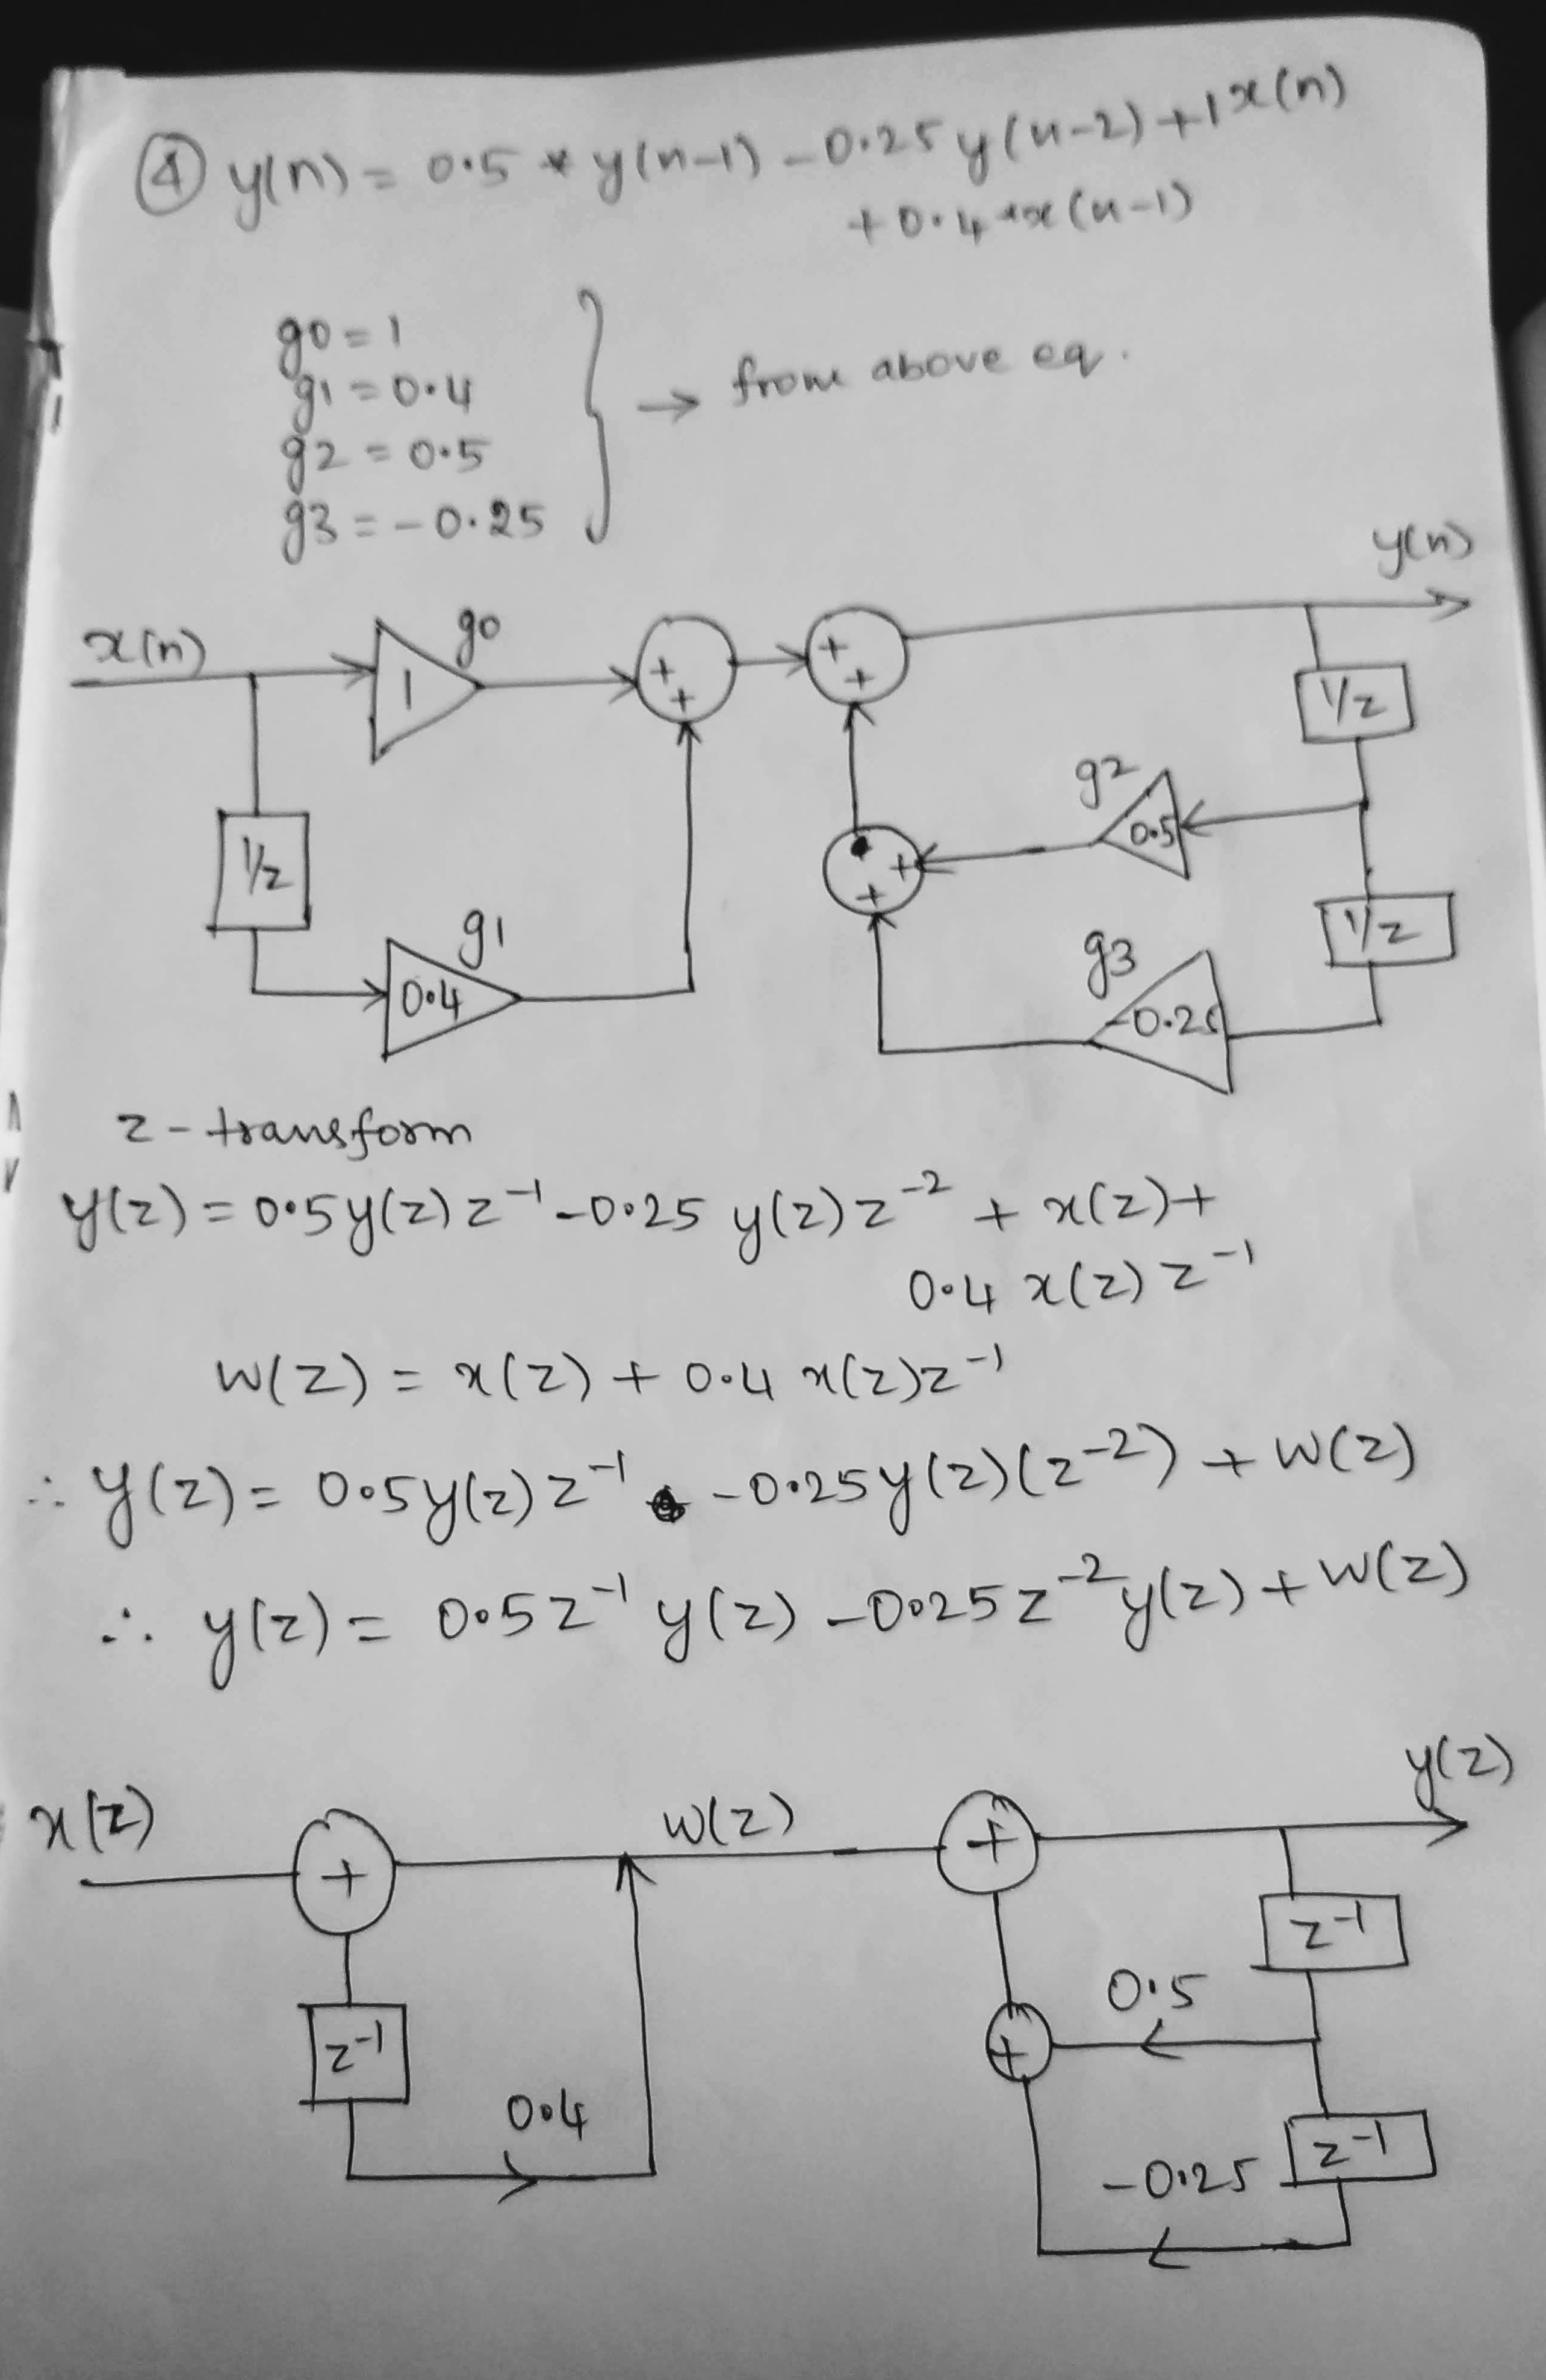 ④ y(n) = 0.5 * y(n-1) - 0.25 y(n-2) + 1 x(n)
+ 0.4 * x(n-1)
g0 = 1
g1 = 0.4
g2 = 0.5
g3 = -0.25
→ from above eq.
y(n)
x(n)
g0
1
+
+
+
+
1/z
g2
0.5
1/z
+
+
g1
0.4
g3
-0.25
1/z
z-transform
y(z) = 0.5y(z)z⁻¹ - 0.25 y(z)z⁻² + x(z) +
0.4 x(z) z⁻¹
W(z) = x(z) + 0.4 x(z)z⁻¹
∴ y(z) = 0.5y(z)z⁻¹ - 0.25y(z)(z⁻²) + W(z)
∴ y(z) = 0.5z⁻¹ y(z) - 0.25z⁻²y(z) + W(z)
y(z)
x(z)
+
W(z)
+
z⁻¹
0.5
z⁻¹
+
0.4
-0.25
z⁻¹